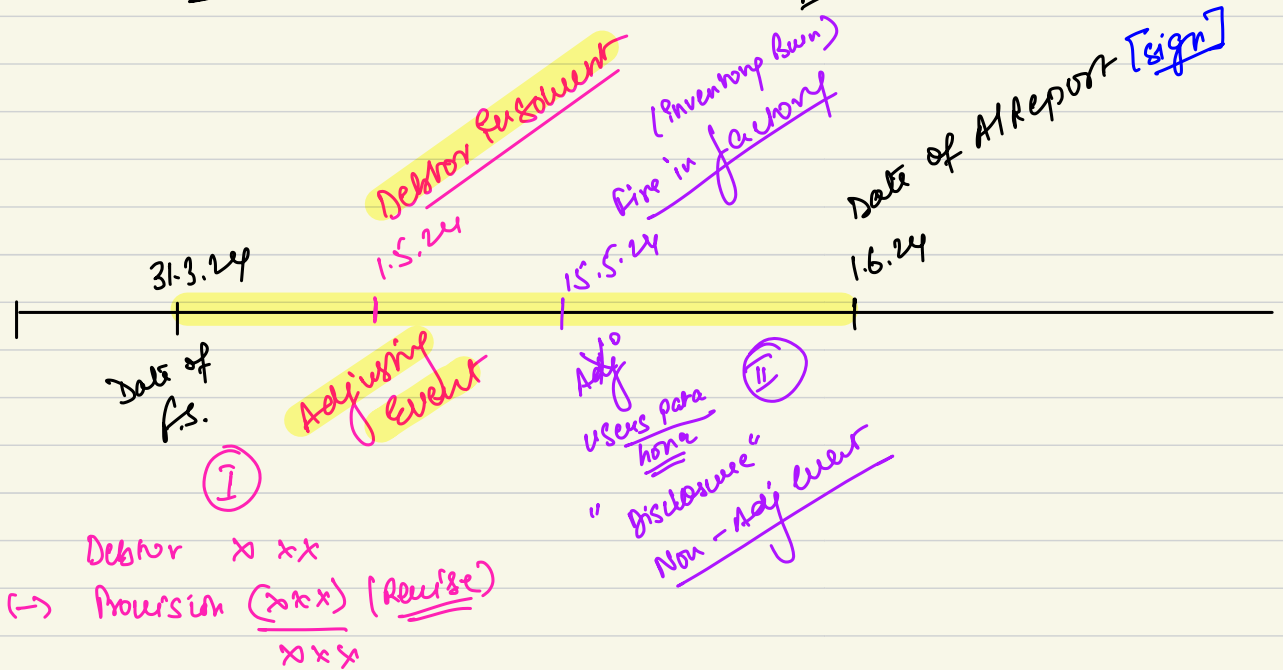 Debtor Insolvent
(Inventory Burn)
Fire in factory
Date of A/Report [sign]
31.3.24
1.5.24
15.5.24
1.6.24
Date of
F.S.
Adjusting
Event
Adj
II
users pata
hona
"Disclosure"
Non-Adj event
I
Debtor xxx
(-) Provision (xxx) (Revise)
xxx